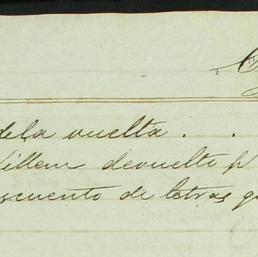 dela vuelta . .
Villem devuelto p
scuento de letras q